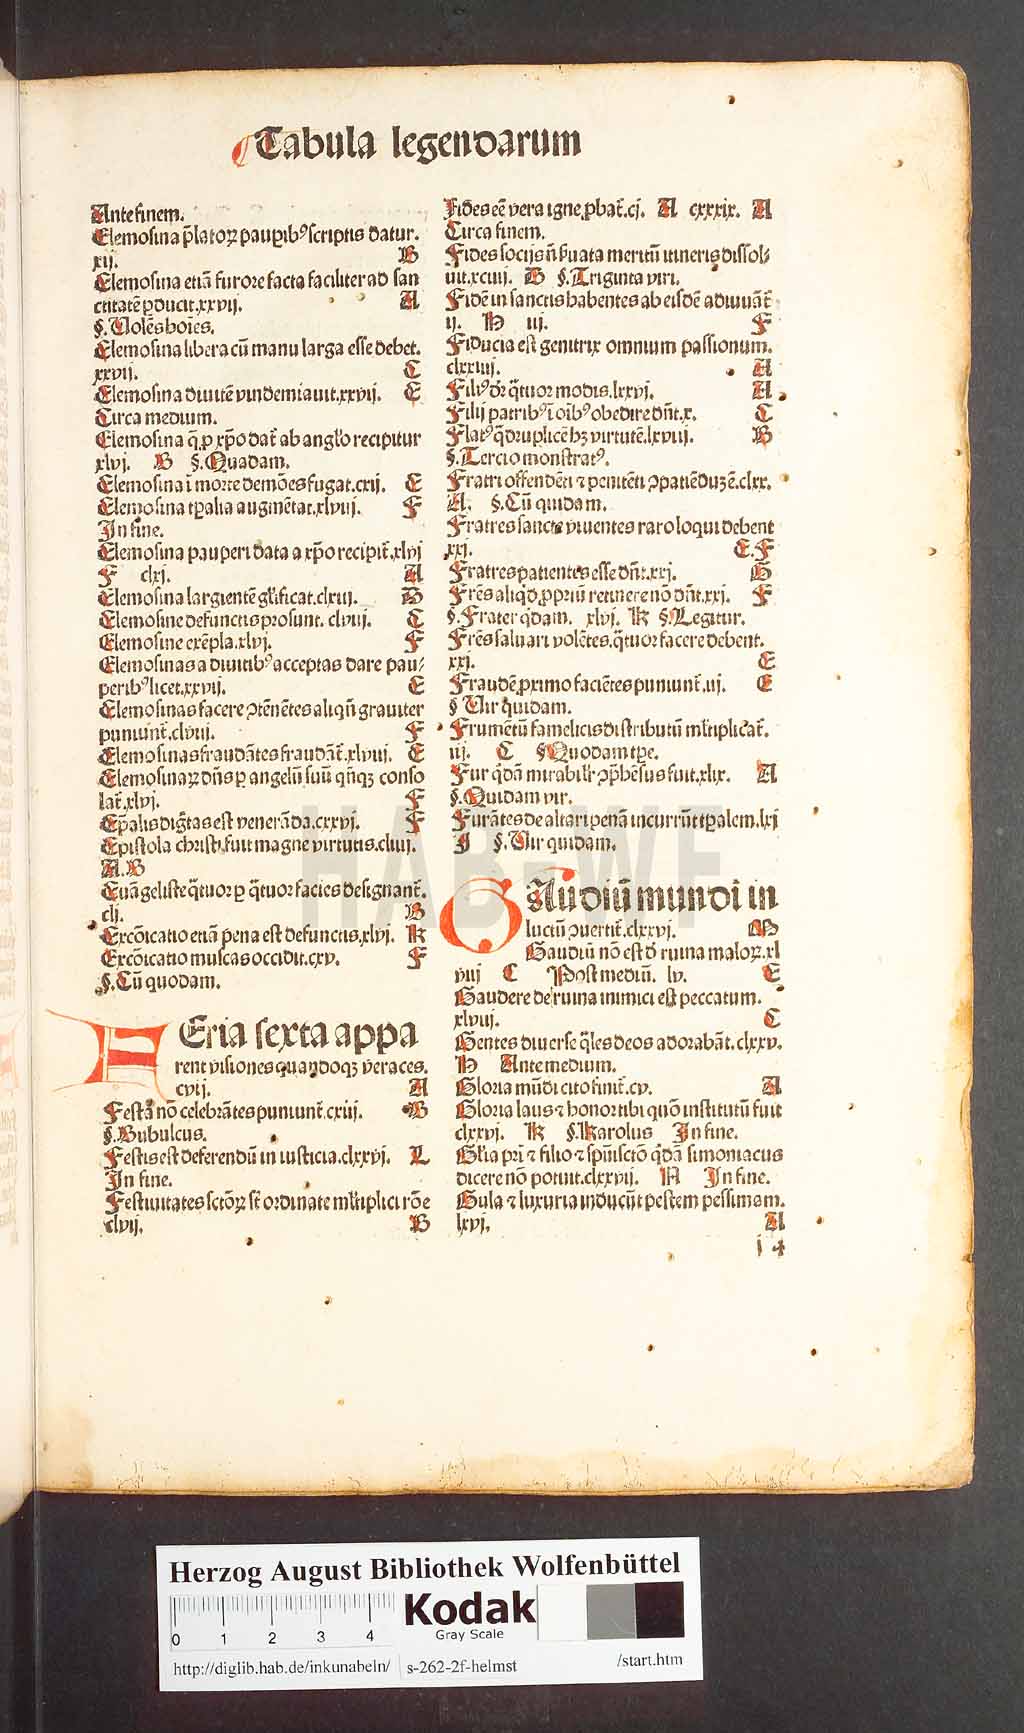 Tabula legendarum
Ante finem.
Elemosina p̄latoꝝ pauꝑibꝰ scriptis datur.
xij. B
Elemosina etiā furore facta faciliter ad san
ctitatē ꝑducit.xxvij. A
§. Uolēs hoīes.
Elemosina libera cū manu larga esse debet.
xxvij. C
Elemosina diuitē vindemiauit.xxvij. E
Circa medium.
Elemosina q̄ ꝓ xp̄o dat̄ ab anglo recipitur
xlvj. B §. Quadam.
Elemosina ī morte demōes fugat.cxij. E
Elemosina tꝑalia augmētat.xlviij. F
In fine.
Elemosina pauperi data a xp̄o recipit̄.xlvj
F clxj. A
Elemosina largientē gl̄ificat.clxiij. D
Elemosine defunctis prosunt. clviij. C
Elemosine exēpla.xlvj. F
Elemosinas a diuitibꝰ acceptas dare pau⸗
peribꝰ licet.xxvij. E
Elemosinas facere ꝯtēnētes aliqñ grauiter
puniunt̄.clviij. F
Elemosinas fraudātes fraudāt̄.xlviij. E
Elemosinaꝝ dn̄s ꝑ angelū suū qn̄qꝫ conso
lat̄.xlvj. F
Ep̄alis diḡtas est venerāda.cxxvj. F
Epistola christi fuit magne virtutis.cliiij.
A.B
Euāgeliste q̄tuor ꝑ q̄tuor facies designant̄.
clj. B
Excōicatio etiā pena est defunctis.xlvj. K
Excōicatio muscas occidit.cxv. F
§. Cū quodam.
FEria sexta appa
rent visiones quandoqꝫ veraces.
cvij. A
Festa nō celebrātes puniunt̄.cxiij. B
§. Bubulcus.
Festis est deferendū in iusticia.clxxvj. L
In fine.
Festiuitates sctōꝝ st̄ ordinate ml̄tiplici rōe
clvij. B
Fides eē vera igne ꝓbat̄.cj. A cxxxix. A
Circa finem.
Fides socijs n̄ ẜuata meritū itineris dissol⸗
uit.xciiij. B §. Triginta viri.
Fidē in sanctis habentes ab eisdē adiuuāt̄
ij. H iij. F
Fiducia est genitrix omnium passionum.
clxxiiij. A
Filiꝰ dr̄ q̄tuor modis.lxxvj. A
Filij patribꝰ ī oībꝰ obedire dn̄t.x. C
Flatꝰ q̄druplicē hꝫ virtutē.lxviij. B
§. Tercio monstratꝰ.
Fratri offendēti ⁊ penitēti ꝯpatiēdū ē.clxx.
A. §. Cū quidam.
Fratres sancte viuentes raro loqui debent
xxj. E.F
Fratres patientes esse dn̄t.xxj. G
Frēs aliq̄d ꝓpriū retinere nō dn̄t.xxj. F
§. Frater q̄dam. xlvj. K §. Legitur.
Frēs saluari volētes.q̄tuor facere debent.
xxj. E
Fraudē ꝓximo faciētes puniunt̄.iij. E
§ Uir quidam.
Frumētū famelicis distributū ml̄tiplicat̄.
iij. C § Quodam tꝑe.
Fur q̄dā mirabilr̄ ꝯp̄hēsus fuit.xlix. A
§. Quidam vir.
Furātes de altari penā incurrūt tꝑalem.lxj
I §. Uir quidam.
GAudiū mundi in
luctū ꝯuertit̄.clxxvj. M
Gaudiū nō est ď ruina maloꝝ.xl
viij C Post mediū. lv. E
Gaudere de ruina inimici est peccatum.
xlviij. C
Gentes diuerse q̄les deos adorabāt.clxxv.
H Ante medium.
Gloria mūdi cito finit̄.cv. A
Gloria laus ⁊ honor tibi quō institutū fuit
clxxvj. K §. Karolus In fine.
Gl̄ia pr̄i ⁊ filio ⁊ spūi sctō q̄dā simoniacus
dicere nō potuit.clxxvij. A In fine.
Gula ⁊ luxuria inducūt pestem pessimam.
lxvj. A
i 4
HAB-WF
Herzog August Bibliothek Wolfenbüttel
0 1 2 3 4
Kodak
Gray Scale
http://diglib.hab.de/inkunabeln/ s-262-2f-helmst /start.htm